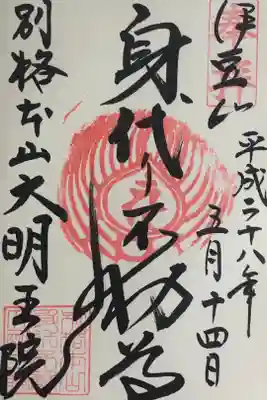 伊豆山
平成二十八年
五月十四日
身代り不動尊
別格本山大明王院